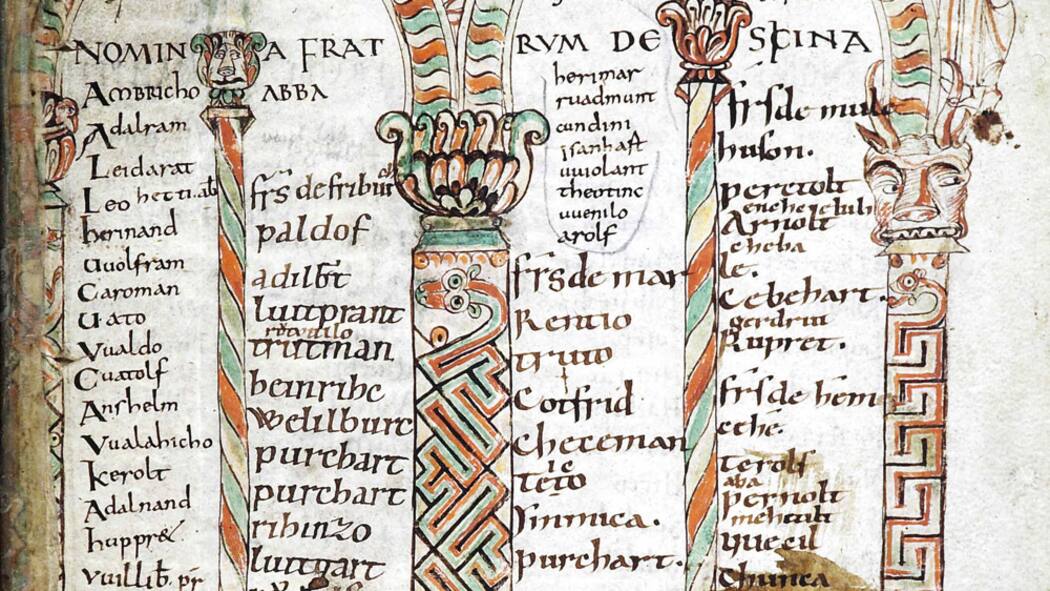 NOMINA FRATRVM DE SCINA
Ambricho ABBA
Adalram
Leidarat
Leo
herinand
Uuolfram
Caroman
Uato
Vualdo
Cuatolf
Anshelm
Vualahicho
kerolt
Adalnand
hupp̄r&
Vuillib̄. pr̄
fr̄s de friburc
paldof
adilb̄t
luitprant
trutman
heinrihc
Wedilburc
purchart
purchart
ribinzo
luitgart
herimar
ruadmunt
cundini
isanhast
uuiolant
theotinc
uuenilo
arolf
fr̄s de mar
Rentio
truto
Cotfrid
checeman
Sinmica.
purchart.
fr̄s de mule
huson.
perctolt
Arnolt
cheba
le.
Cebehart.
gerdrut
Rupret.
fr̄s de hem
eche.
terolf
aba
pernolt
mehtilt
Chunca